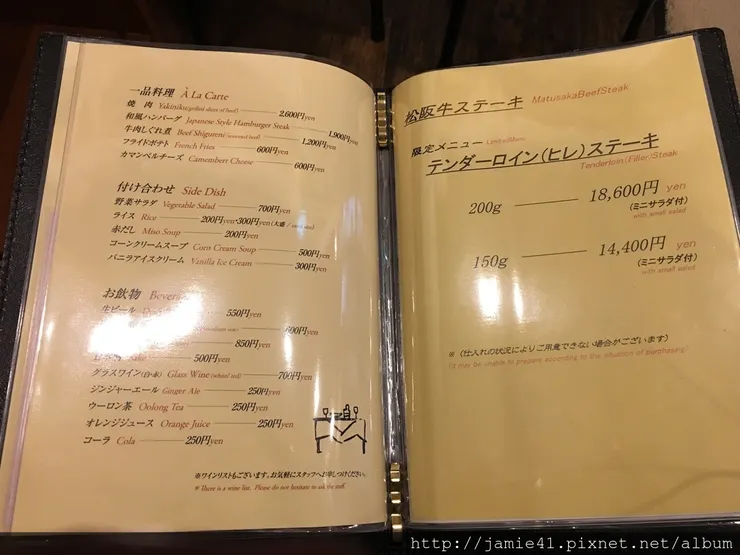 一品料理 À La Carte
焼肉 Yakiniku(grilled slices of beef) 2,600円yen
和風ハンバーグ Japanese Style Hamburger Steak 1,900円yen
牛肉しぐれ煮 Beef Shigureni(seasoned beef) 1,200円yen
フライドポテト French Fries 600円yen
カマンベルチーズ Camembert Cheese 600円yen
付け合わせ Side Dish
野菜サラダ Vegetable Salad 700円yen
ライス Rice 200円yen・300円yen(大盛 /
赤だし Miso Soup 200円yen
コーンクリームスープ Corn Cream Soup 500円yen
バニラアイスクリーム Vanilla Ice Cream 300円yen
お飲物
生ビール 550円yen
600円yen
850円yen
500円yen
グラスワイン(白・赤) Glass Wine(white/ red) 700円yen
ジンジャーエール Ginger Ale 250円yen
ウーロン茶 Oolong Tea 250円yen
オレンジジュース Orange Juice 250円yen
コーラ Cola 250円yen
※ワインリストもございます。お気軽にスタッフへお申しつけください。
※ There is a wine list. Please do not hesitate to ask the staff.
松阪牛ステーキ MatusakaBeefSteak
限定メニュー LimitedMenu
テンダーロイン(ヒレ)ステーキ
Tenderloin(Filler)Steak
200g 18,600円 yen
(ミニサラダ付)
with small salad
150g 14,400円 yen
(ミニサラダ付)
with small salad
※(仕入れの状況によりご用意できない場合がございます)
(It may be unable to prepare according to the situation of purchasing)
http://jamie41.pixnet.net/album